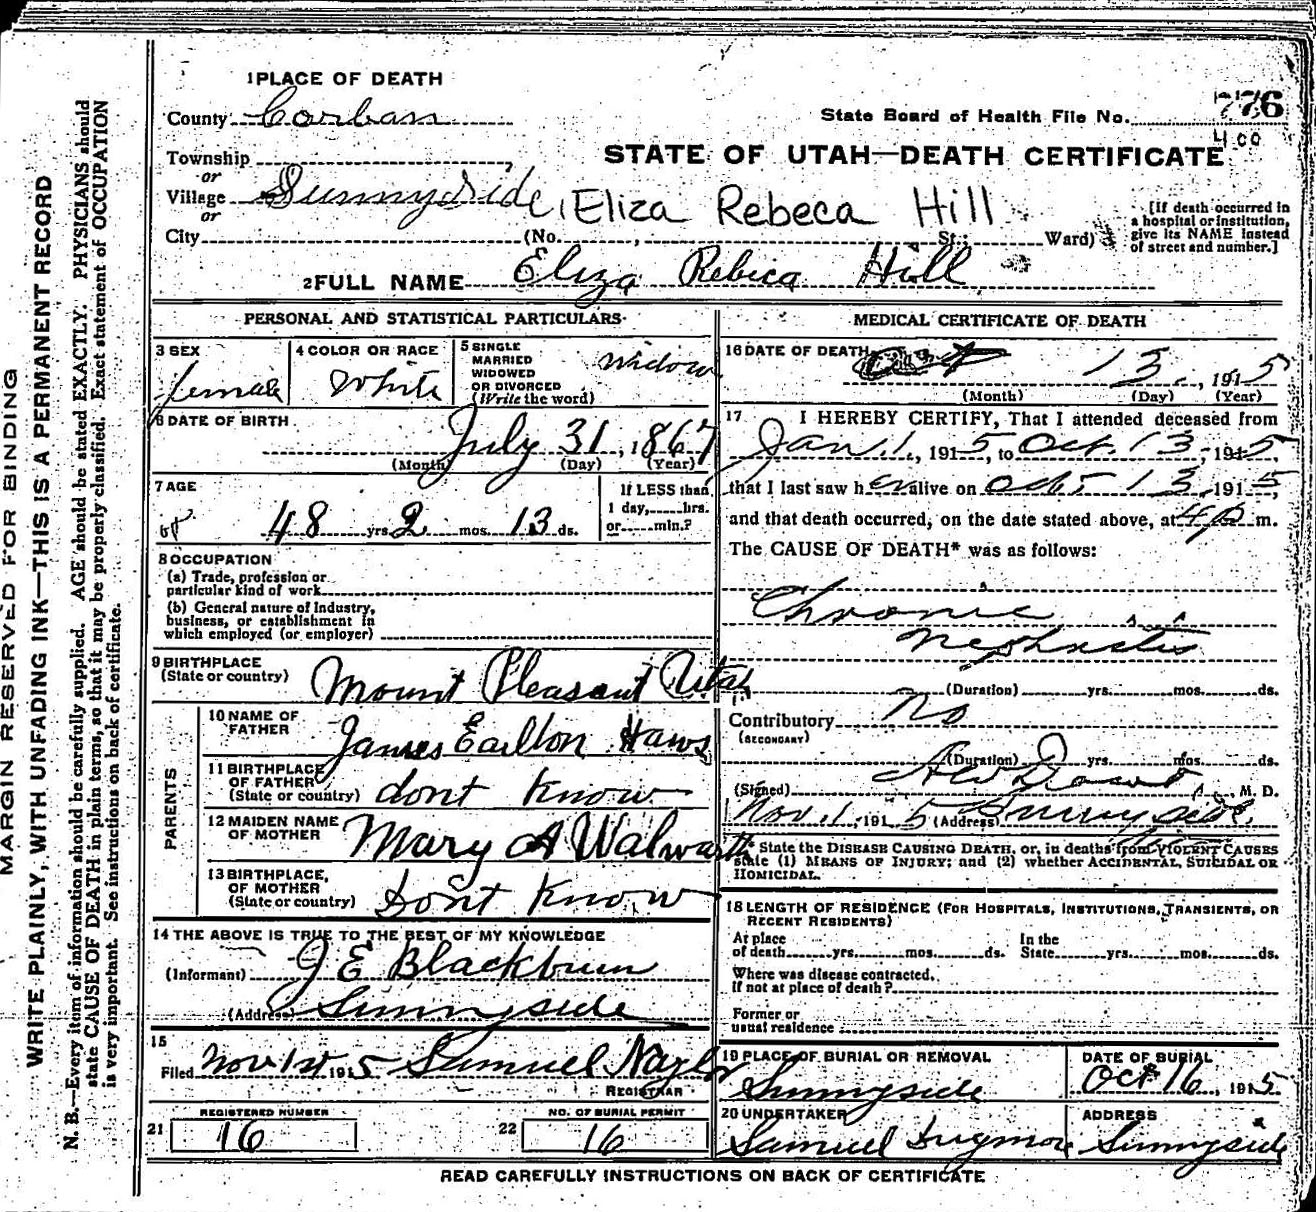 1 PLACE OF DEATH
County Corban
State Board of Health File No. 776
4 00
Township
or
STATE OF UTAH—DEATH CERTIFICATE
Village Sunnyside, Eliza Rebeca Hill
or
City (No. , St.; Ward)
[If death occurred in
a hospital or institution,
give its NAME instead
of street and number.]
2 FULL NAME Eliza Rebica Hill
PERSONAL AND STATISTICAL PARTICULARS
3 SEX
female
4 COLOR OR RACE
White
5 SINGLE
MARRIED
WIDOWED
OR DIVORCED
(Write the word)
widow
6 DATE OF BIRTH
July 31, 1867
(Month) (Day) (Year)
7 AGE
48 yrs 2 mos. 13 ds.
If LESS than
1 day, hrs.
or min.?
8 OCCUPATION
(a) Trade, profession or
particular kind of work
(b) General nature of Industry,
business, or establishment in
which employed (or employer)
9 BIRTHPLACE
(State or country) Mount Pleasant Utah
PARENTS
10 NAME OF
FATHER James Earlton Haws
11 BIRTHPLACE
OF FATHER
(State or country) dont Know
12 MAIDEN NAME
OF MOTHER Mary A Walwarth
13 BIRTHPLACE,
OF MOTHER
(State or country) Dont Know
14 THE ABOVE IS TRUE TO THE BEST OF MY KNOWLEDGE
(Informant) J E Blackburn
(Address) Sunnyside
15
Filed Nov 1st 1915 Samuel Naylor
REGISTRAR
REGISTERED NUMBER
21 16
NO. OF BURIAL PERMIT
22 16
MEDICAL CERTIFICATE OF DEATH
16 DATE OF DEATH
Oct 13, 1915
(Month) (Day) (Year)
17 I HEREBY CERTIFY, That I attended deceased from
Jan. 1, 1915, to Oct. 13, 1915,
that I last saw her alive on Oct 13, 1915,
and that death occurred, on the date stated above, at 4 p m.
The CAUSE OF DEATH* was as follows:
Chronic
Nephritis
(Duration) yrs. mos. ds.
Contributory No
(SECONDARY)
(Duration) yrs. mos. ds.
(Signed) , M. D.
Nov. 1, 1915 (Address) Sunnyside
* State the DISEASE CAUSING DEATH, or, in deaths from VIOLENT CAUSES
state (1) MEANS OF INJURY; and (2) whether ACCIDENTAL, SUICIDAL OR
HOMICIDAL.
18 LENGTH OF RESIDENCE (FOR HOSPITALS, INSTITUTIONS, TRANSIENTS, OR
RECENT RESIDENTS)
At place
of death yrs. mos. ds.
In the
State yrs. mos. ds.
Where was disease contracted,
if not at place of death?
Former or
usual residence
19 PLACE OF BURIAL OR REMOVAL
Sunnyside
DATE OF BURIAL
Oct 16, 1915
20 UNDERTAKER
Samuel
ADDRESS
Sunnyside
READ CAREFULLY INSTRUCTIONS ON BACK OF CERTIFICATE
MARGIN RESERVED FOR BINDING
WRITE PLAINLY, WITH UNFADING INK—THIS IS A PERMANENT RECORD
N. B.—Every item of information should be carefully supplied. AGE should be stated EXACTLY. PHYSICIANS should
state CAUSE OF DEATH in plain terms, so that it may be properly classified. Exact statement of OCCUPATION
is very important. See instructions on back of certificate.